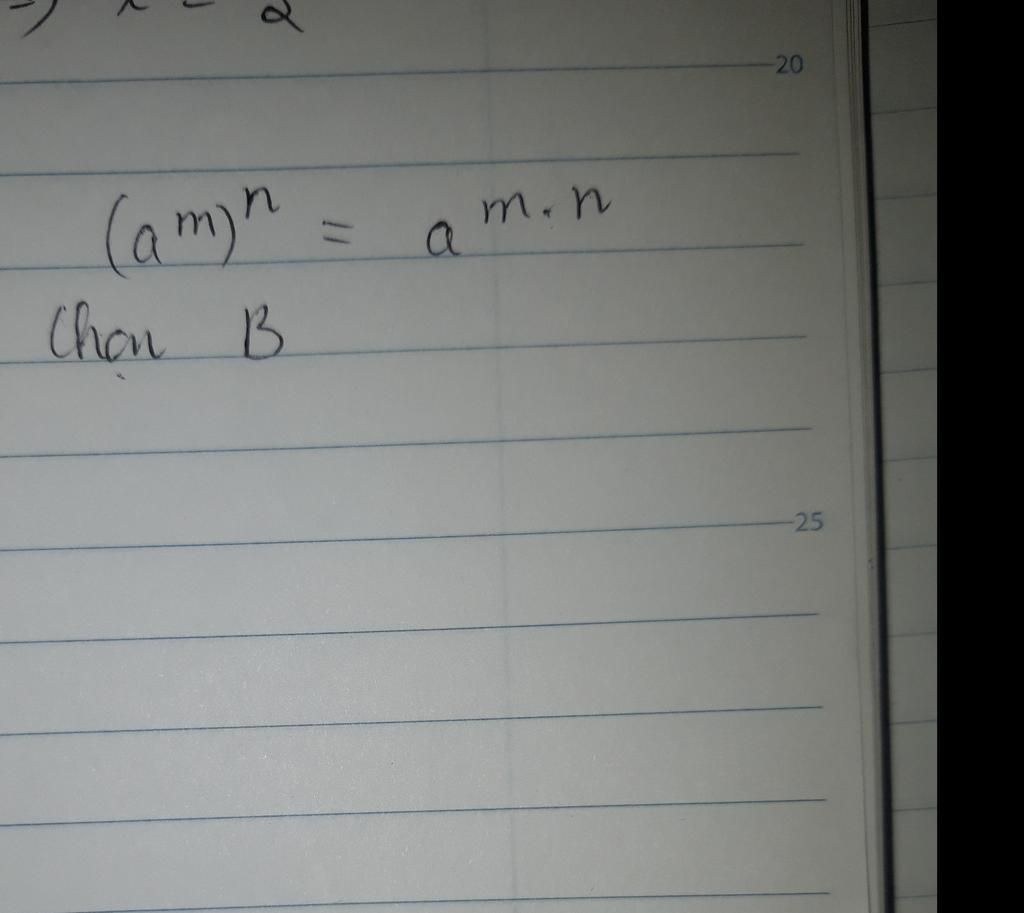 x = 2
20
(a^m)^n = a^{m.n}
Chọn B
25